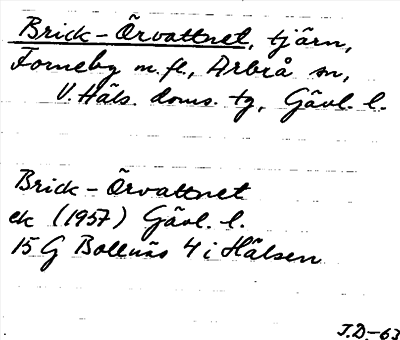 Brick-Örvattnet, tjärn,
Forneby m.fl., Arbrå sn,
V. Häls. doms. tg, Gävl. l.
Brick-Örvattnet
ek (1957) Gävl. l.
15 G Bollnäs 4 i Hälsen
J.D.-63